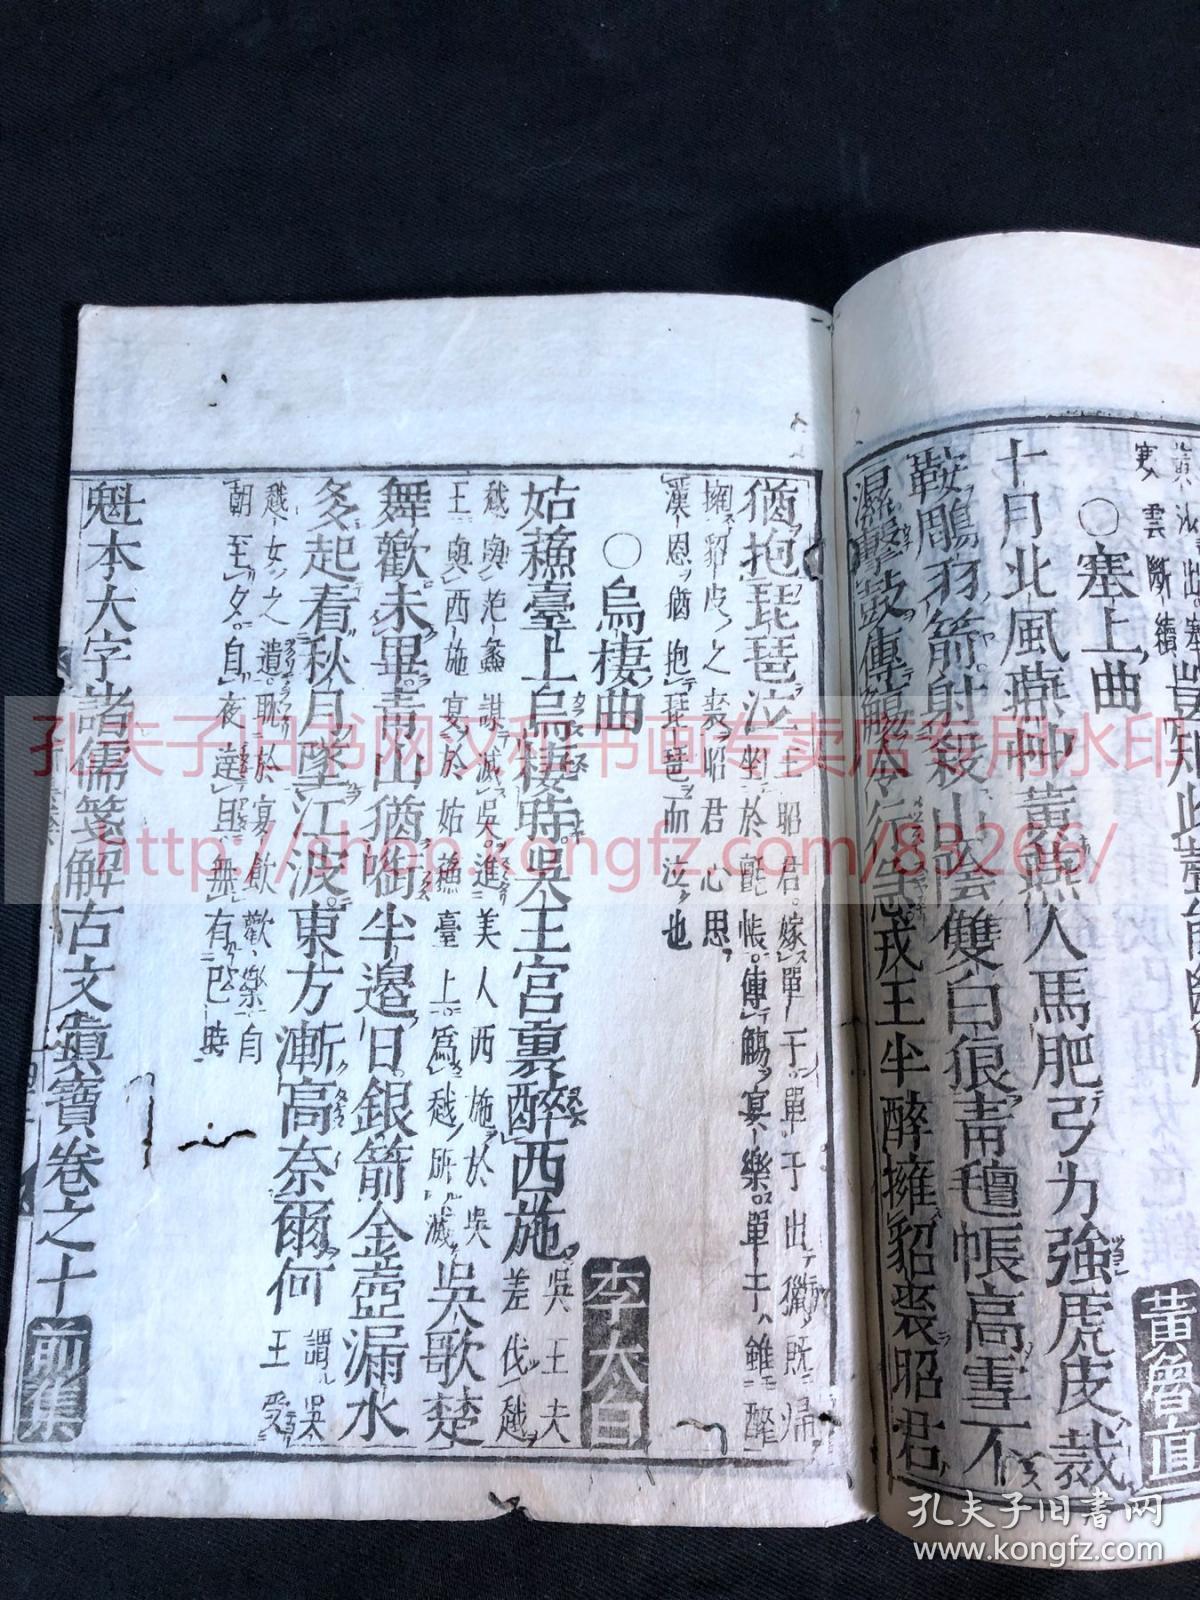 ○塞上曲
黃魯直
十月北風燕艸黃燕人馬肥弓力強虎皮裁
鞍鵰羽箭射殺山陰雙白狼青氊帳高雪不
濕擊鼓傳觴令行急戎王半醉擁貂裘昭君
猶抱琵琶泣
王昭君嫁單于單于出獵既歸
坐於氊帳傳觴宴樂單于雖醉
擁貂皮之裘昭君心思
漢恩猶抱琵琶而泣也
○烏棲曲
李太白
姑蘓臺上烏棲時吳王宮裏醉西施
吳王夫
差伐越
越與范蠡謀滅吳進美人西施於吳
王與西施宴於姑蘓臺上為越所滅
吳歌楚
舞歡未畢青山猶啣半邊日銀箭金壺漏水
多起看秋月墜江波東方漸高奈爾何
謂吳
王受
越女之遺耽於宴飲歡樂自
朝至夕自夜達旦無有已時
魁本大字諸儒箋解古文眞寶卷之十
前集
孔夫子旧书网文科书画专卖店专用水印
http://shop.kongfz.com/83266/
孔夫子旧书网
www.kongfz.com